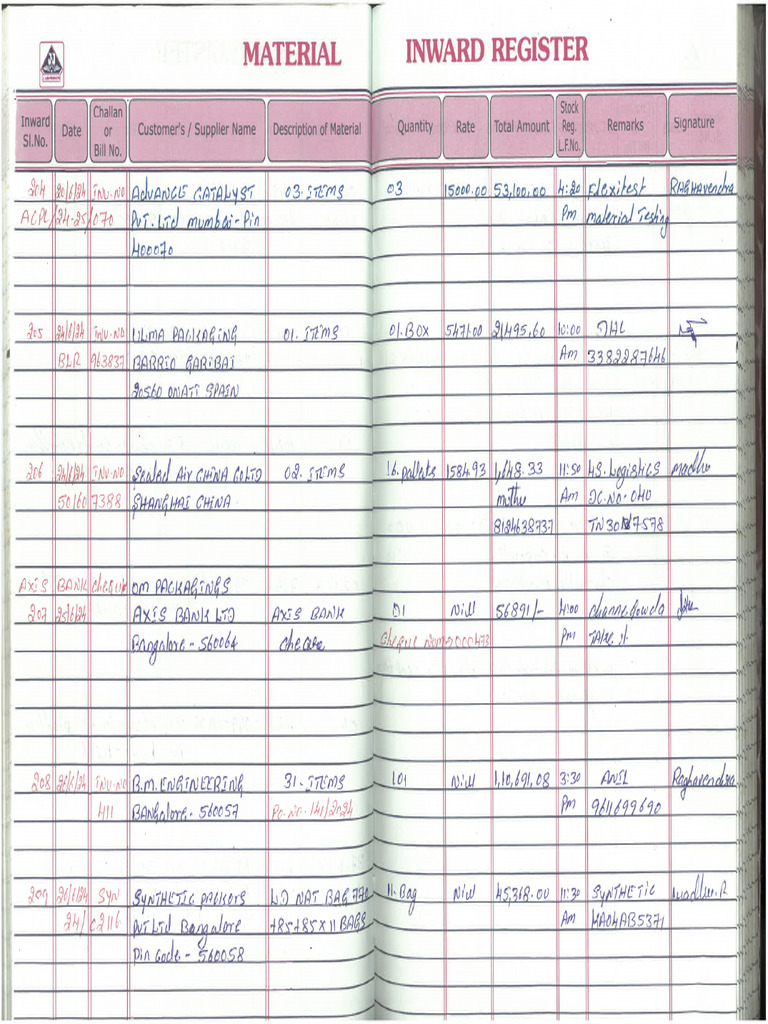 MATERIAL INWARD REGISTER
Inward Sl.No. Date Challan or Bill No. Customer's / Supplier Name Description of Material Quantity Rate Total Amount Stock Reg. L.F.No. Remarks Signature
204 20/6/24 INV-NO ADVANCE CATALYST 03-ITEMS 03 15000.00 53,100.00 4:20 Flexitest Raghavendra
ACPL/24-25/070 Pvt. Ltd mumbai-Pin Pm material Testing
400070
205 24/6/24 INV-NO ULMA PACKAGING 01-ITEMS 01.BOX 547.00 21495.60 10:00 DHL
BLR 963837 BARRIO GARIBAI Am 3382287646
20560 ONATI SPAIN
206 24/6/24 INV-NO Sealed Air CHINA Co LTD 02-ITEMS 16.pallets 1584.93 1,648.33 11:50 4S.Logistics madhu
50160 7388 SHANGHAI CHINA muthu Am DC.NO-040
8124638737 TN30 7578
AXIS BANK cheque OM PACKAGINGS
207 25/6/24 AXIS BANK LTD AXIS BANK 01 Nill 56891/- 4:00 channegowda
Bangalore-560064 cheque cheque Num-000473 Pm
208 26/6/24 INV-NO B.M.ENGINEERING 31-ITEMS 101 Nill 1,10,691.08 3:30 ANIL Raghavendra
411 BANGalore-560057 Po.No-141/2024 Pm 9611699690
209 26/6/24 SYN SYNTHETIC PACKERS LD NAT BAG 11.Bag Nill 45,368.00 11:30 SYNTHETIC madhu.R
24/C2116 Pvt Ltd Bangalore +85+85X11 BAGS Am KA04AB5371
Pin Code-560058